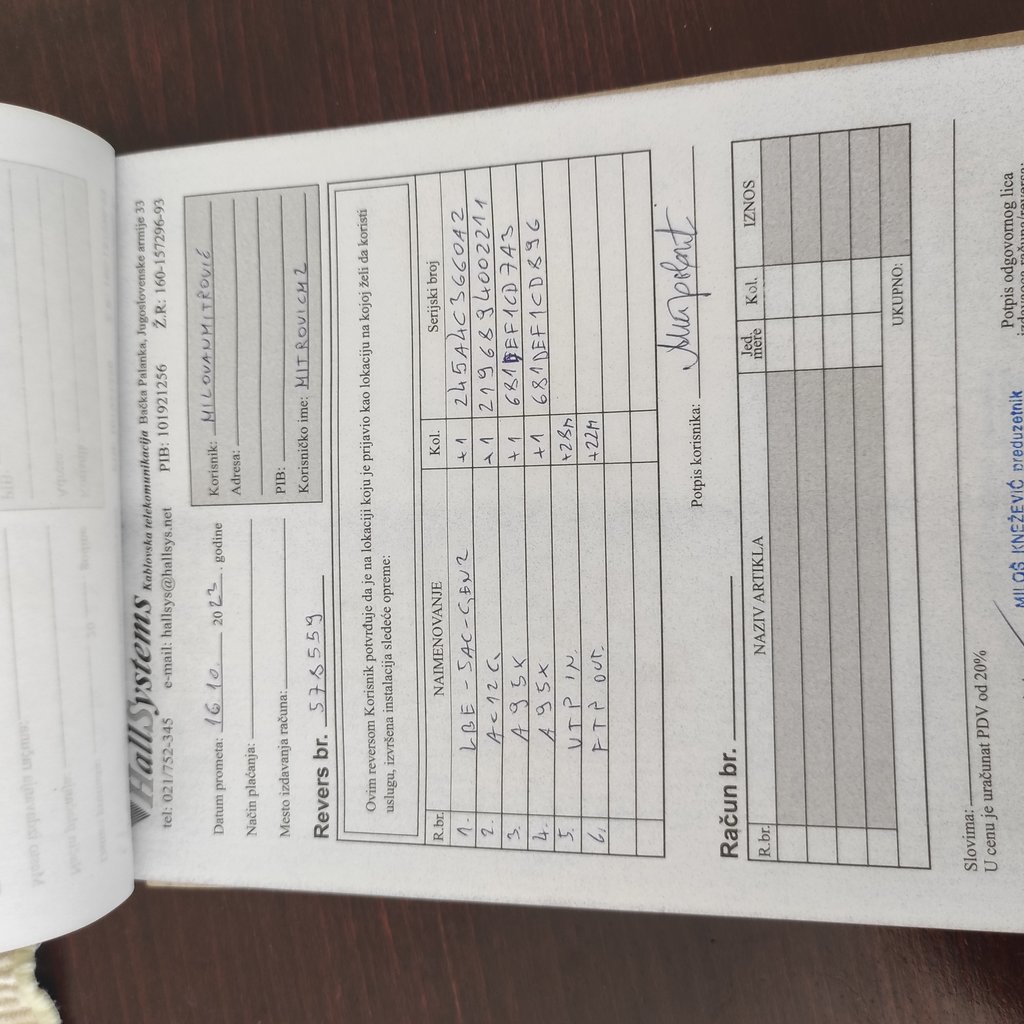 HallSystems Kablovska telekomunikacija Bačka Palanka, Jugoslovenske armije 33
tel: 021/752-345 e-mail: hallsys@hallsys.net PIB: 101921256 Ž.R: 160-157296-93
Datum prometa: 16.10. 2023. godine
Način plaćanja:
Mesto izdavanja računa:
Revers br. 578559
Korisnik: MILOVANMITROVIĆ
Adresa:
PIB:
Korisničko ime: MITROVICM2
Ovim reversom Korisnik potvrđuje da je na lokaciji koju je prijavio kao lokaciju na kojoj želi da koristi
uslugu, izvršena instalacija sledeće opreme:
R.br. NAIMENOVANJE Kol. Serijski broj
1. LBE-5AC-GEN2 +1 245A4C366042
2. AC12G +1 2196894002211
3. A95X +1 681DEF1CD7A3
4. A95X +1 681DEF1CDB96
5. UTP IN. +28m
6. FTP OUT. +22m
Potpis korisnika:
Račun br.
R.br. NAZIV ARTIKLA Jed. mere Kol. IZNOS
UKUPNO:
Slovima:
U cenu je uračunat PDV od 20%
Potpis odgovornog lica
MILOŠ KNEŽEVIĆ preduzetnik